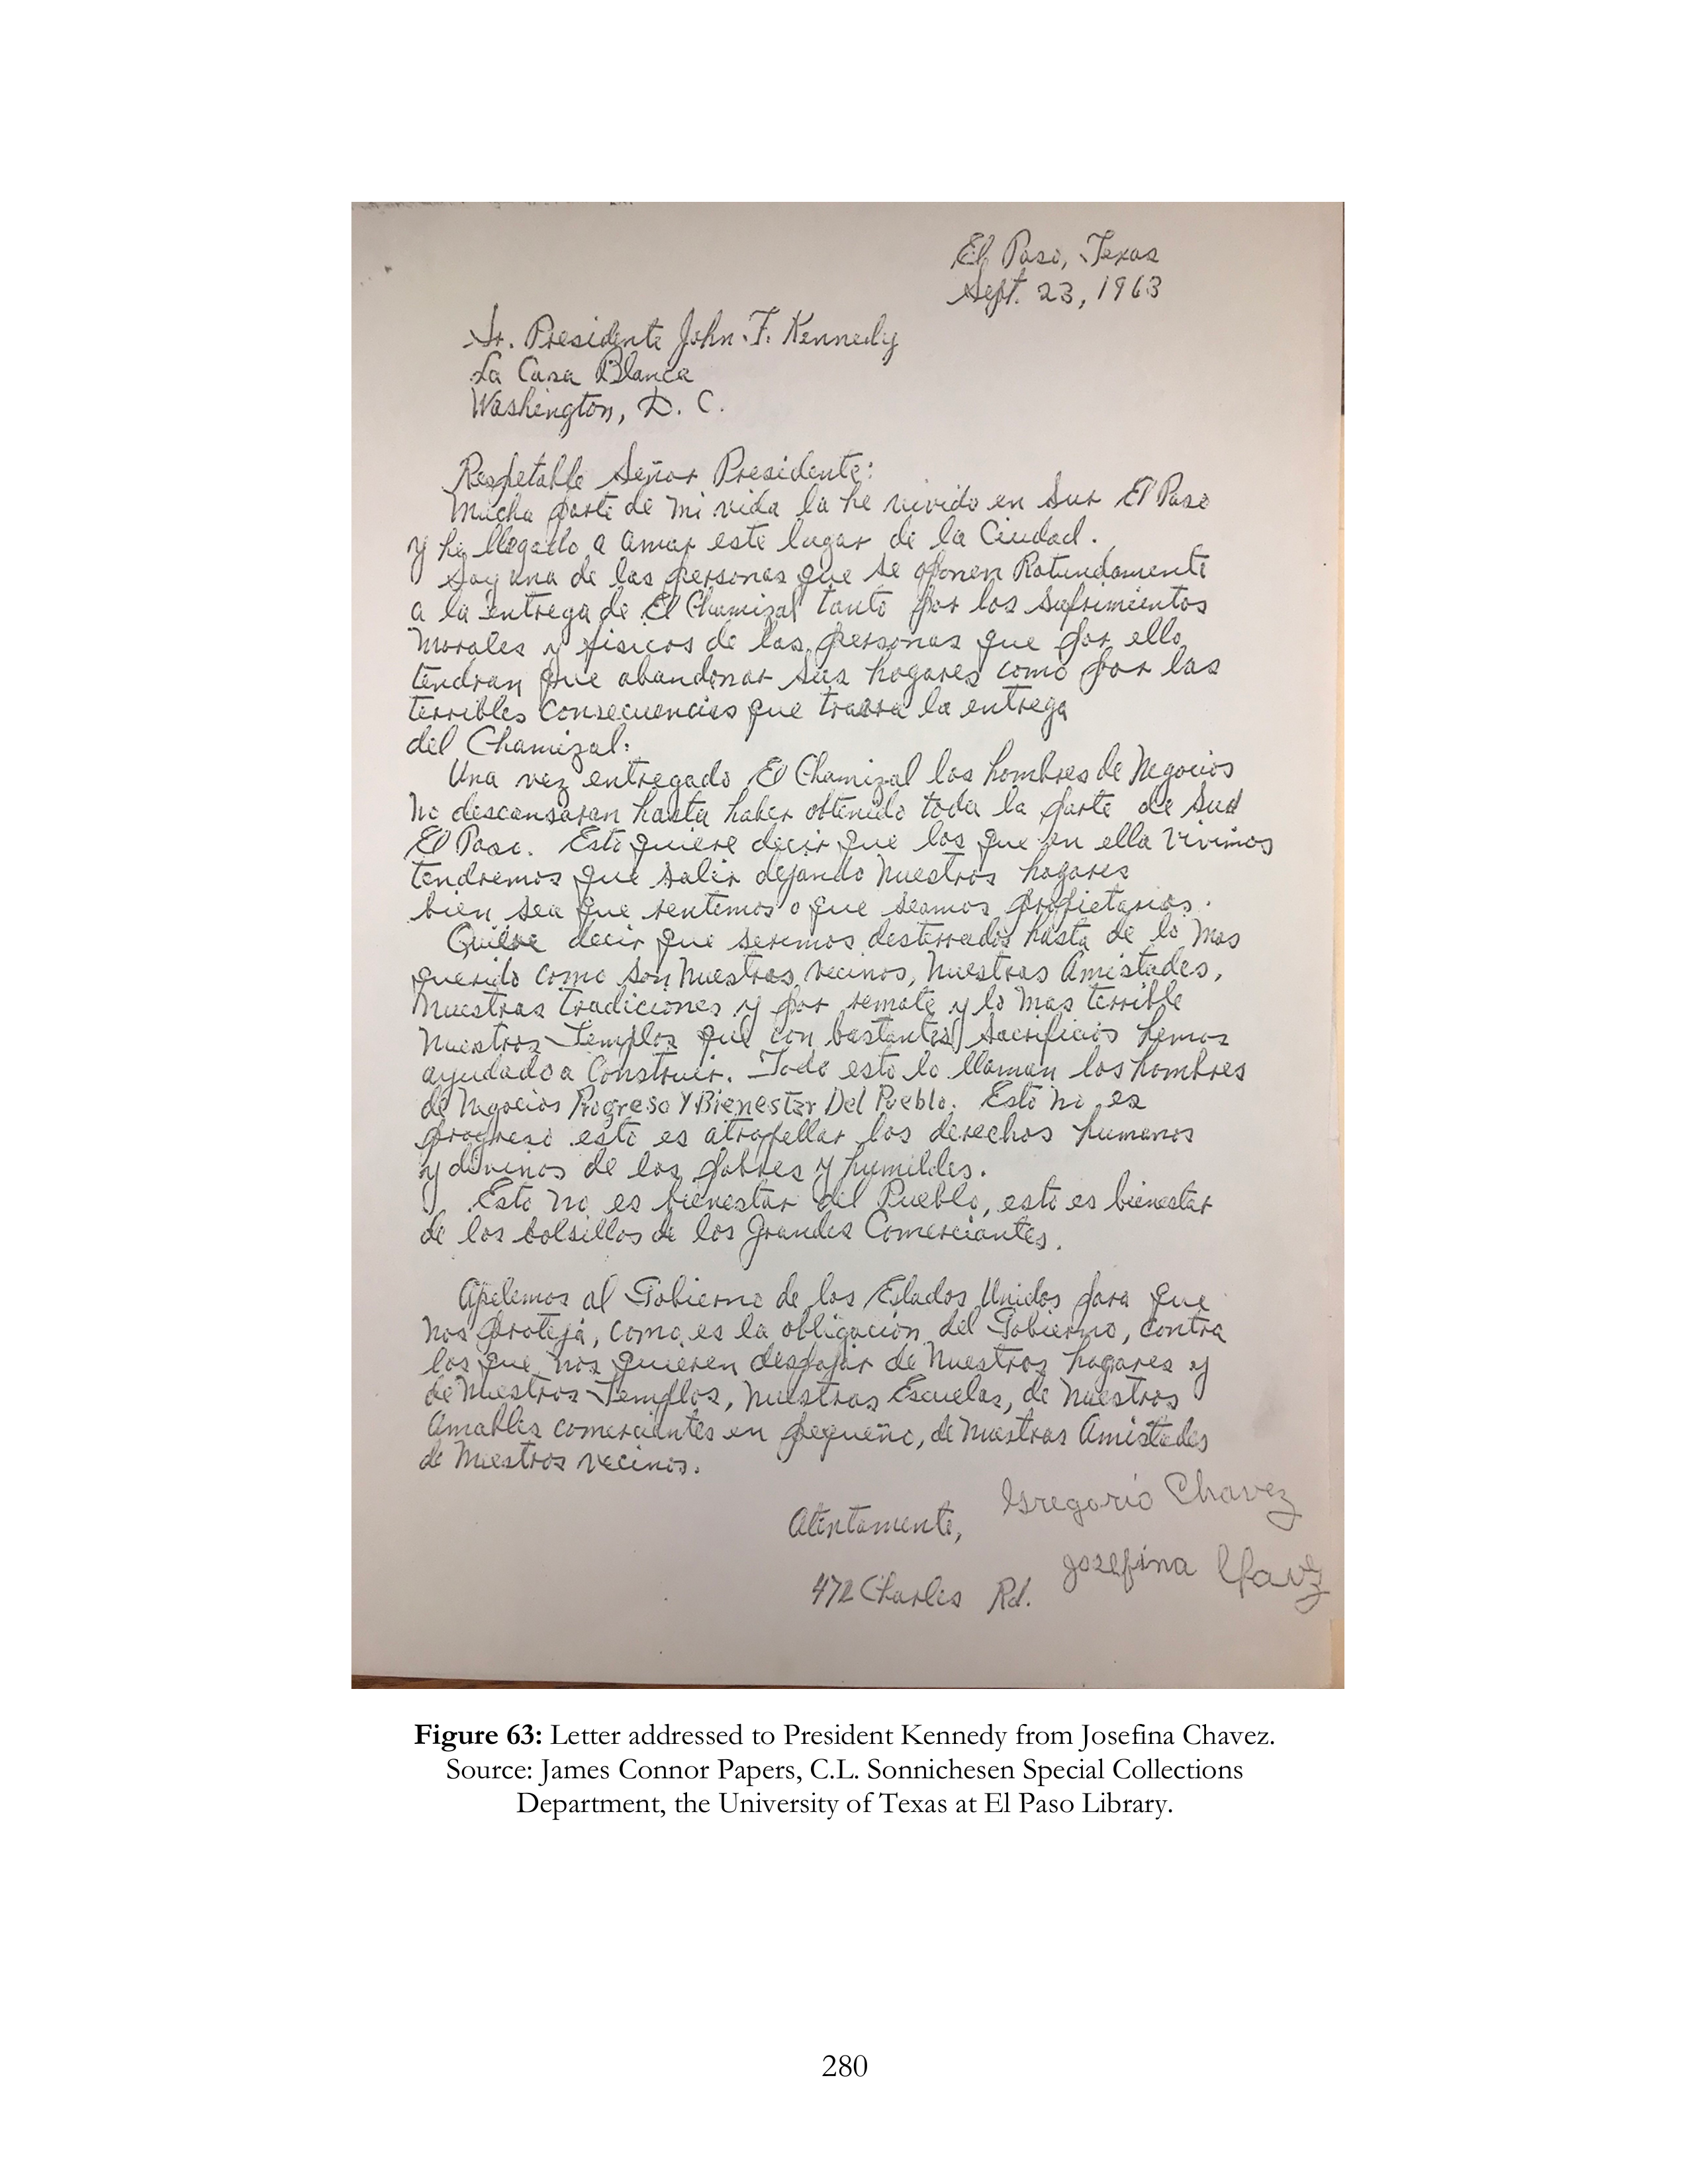 El Paso, Texas
Sept. 23, 1963
Sr. Presidente John F. Kennedy
La Casa Blanca
Washington, D. C.
Respetable Señor Presidente:
Mucha parte de mi vida la he vivido en Sur El Paso
y he llegado a amar este lugar de la Ciudad.
Soy una de las personas que se oponen Rotundamente
a la entrega de El Chamizal tanto por los sufrimientos
Morales y fisicos de las personas que por ello
tendran que abandonar sus hogares como por las
terribles Consecuencias que traera la entrega
del Chamizal.
Una vez entregado El Chamizal los hombres de Negocios
No descansaran hasta haber obtenido toda la parte de Sud
El Paso. Esto quiere decir que los que en ella Vivimos
tendremos que salir dejando Nuestros hogares
bien sea que rentemos o que seamos propietarios.
Quiere decir que seremos desterrados hasta de lo Mas
querido como son Nuestros vecinos, Nuestras Amistades,
Nuestras tradiciones y por remate y lo Mas terrible
Nuestros Templos que con bastantes sacrificios hemos
ayudado a Construir. Todo esto lo llaman los hombres
de Negocios Progreso Y Bienestar Del Pueblo. Esto No es
progreso esto es atropellar los derechos humanos
y divinos de los pobres y humildes.
Esto No es bienestar del Pueblo, esto es bienestar
de los bolsillos de los Grandes Comerciantes.
Apelemos al Gobierno de los Estados Unidos para que
Nos proteja, como es la obligación del Gobierno, contra
los que nos quieren despojar de Nuestros hogares y
de Nuestros Templos, Nuestras Escuelas, de Nuestros
Amables comerciantes en pequeño, de Nuestras Amistades
de Nuestros vecinos.
Atentamente, Gregorio Chavez
472 Charles Rd. Josefina Chavez
Figure 63: Letter addressed to President Kennedy from Josefina Chavez.
Source: James Connor Papers, C.L. Sonnichesen Special Collections
Department, the University of Texas at El Paso Library.
280